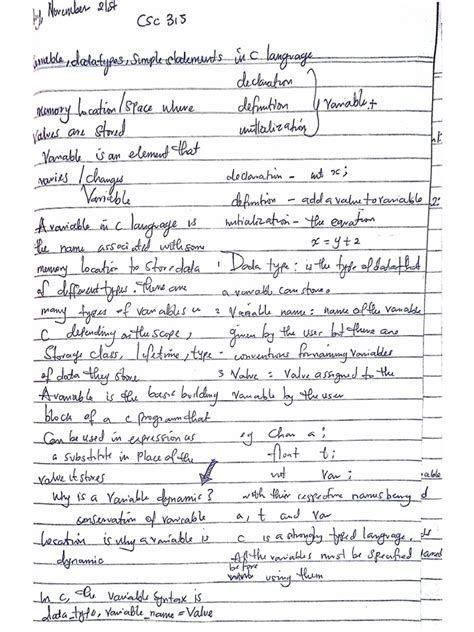 November 21st
CSC 315
Variable, datatypes, simple statements in C language
memory location/space where
values are stored
Variable is an element that
varies / changes
Variable
A variable in C language is
the name associated with some
memory location to store data
of different types, there are
many types of variables in
C depending on the scope,
Storage class, lifetime, type
of data they store
A variable is the basic building
block of a C program that
Can be used in expression as
a substitute in place of the
value it stores
Why is a variable dynamic?
conservation of variable
location is why a variable is
dynamic
In C, the variable syntax is
data_type, variable_name = Value
declaration
definition } Variable
initialization
declaration - int x;
definition - add a value to variable
initialization - the equation
x = y + 2
1 Data type: is the type of data that
a variable can store.
2 Variable name: name of the variable
given by the user but there are
conventions for naming variables
3 Value = Value assigned to the
variable by the user
eg Char a;
float t;
int var;
with their respective names being
a, t and var
C is a strongly typed language.
All the variables must be specified
before
using them